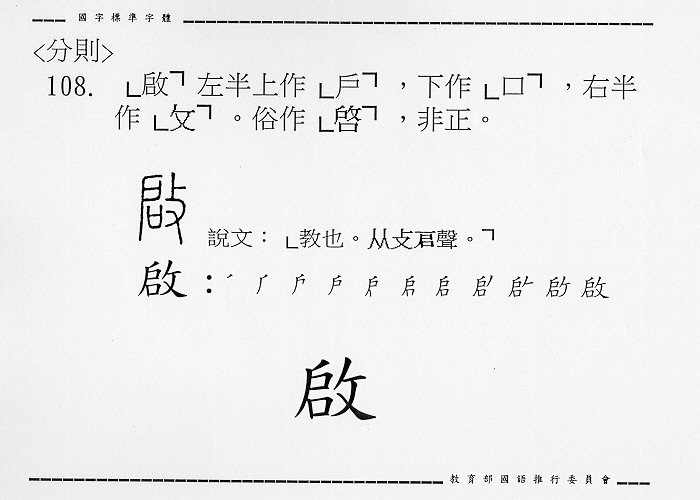 國字標準字體
<分則>
108. ﹂啟﹁左半上作﹂戶﹁,下作﹂口﹁,右半
作﹂攵﹁。俗作﹂啓﹁,非正。
說文:﹂教也。从攴启聲。﹁
啟:
啟
教育部國語推行委員會